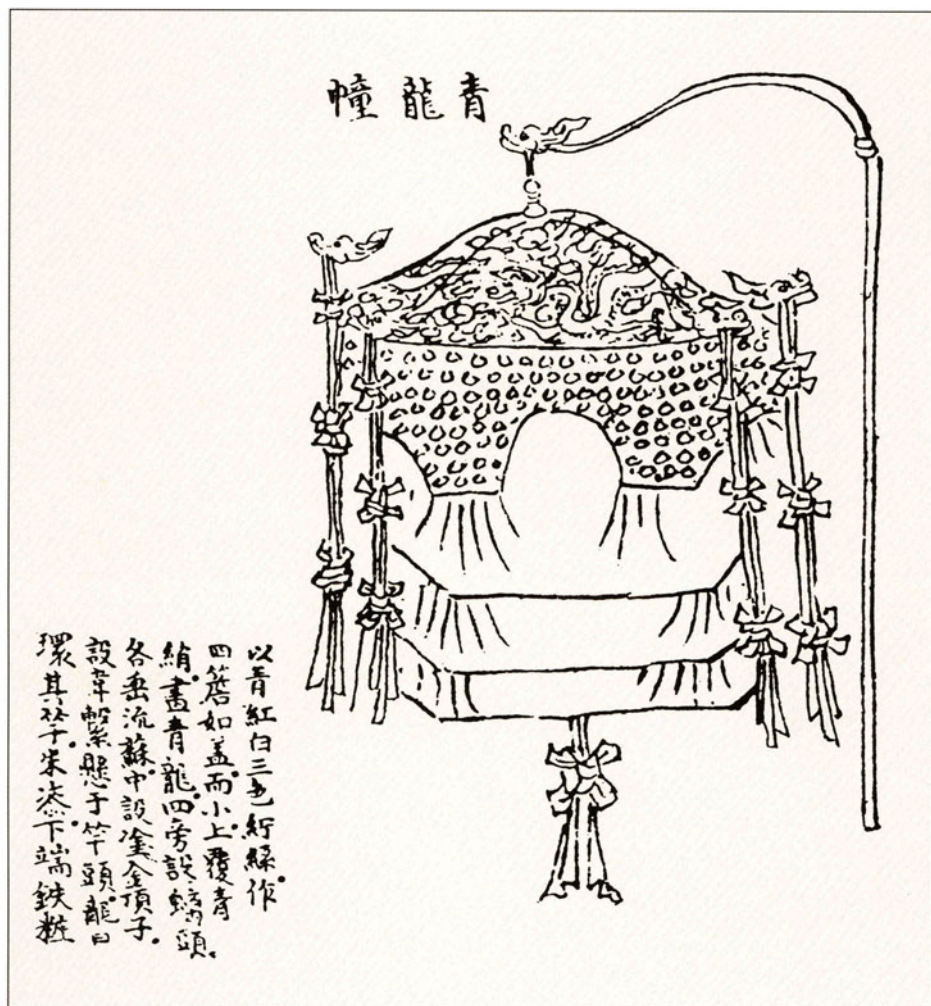 青龍幢
以青紅白三色紵絲作
四簷如盖而小上覆青
綃畫青龍四旁設螭頭
各垂流蘇中設塗金頂子
設韋繫懸于竿頭龍口
環其竿朱漆下端鉄粧